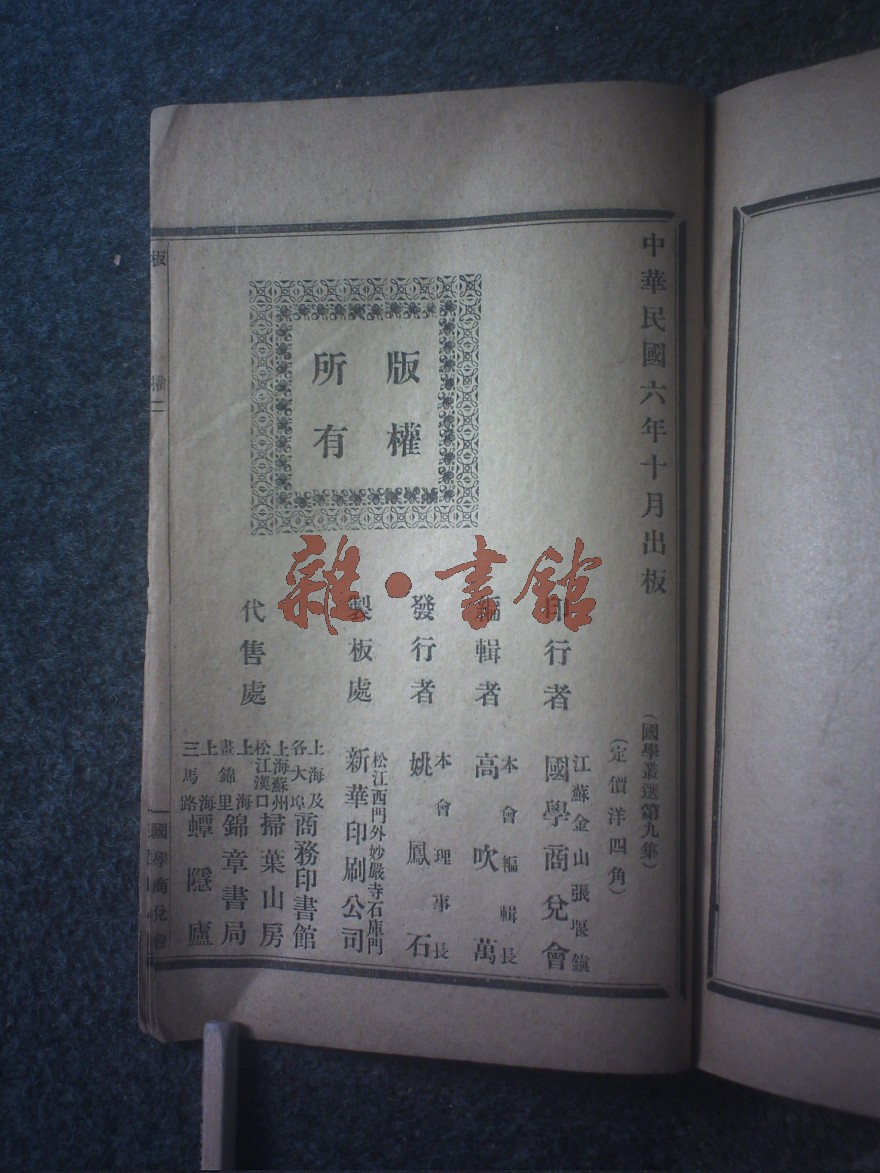 中華民國六年十月出板
(國學叢選第九集)
(定價洋四角)
版權
所有
印行者
江蘇金山張堰鎭
國學商兌會
編輯者
本會編輯長
高吹萬
發行者
本會理事長
姚鳳石
製板處
松江西門外妙嚴寺石庫門
新華印刷公司
代售處
上海及各大埠
商務印書館
上海蘇州松江漢口
掃葉山房
上海畫錦里
錦章書局
上海三馬路
蟫隱廬
板權
二
國學商兌會
雜·書館